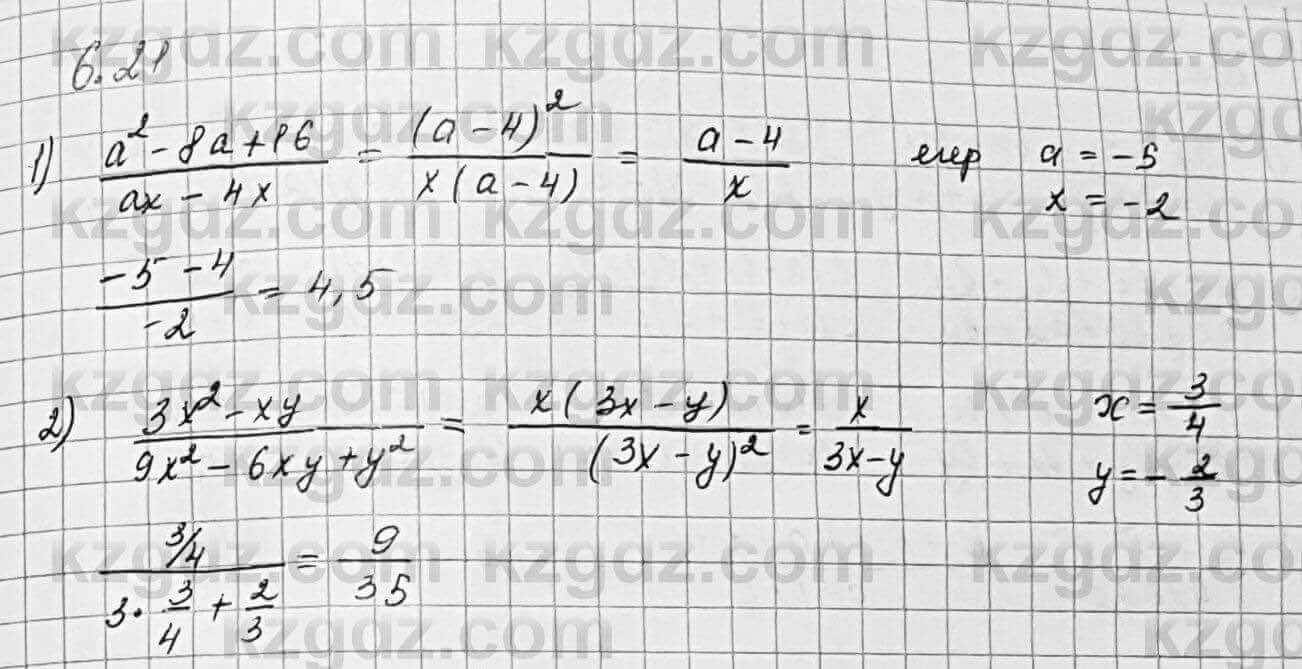 6.21
1) (a² - 8a + 16)/(ax - 4x) = (a - 4)²/(x(a - 4)) = (a - 4)/x егер a = -5
x = -2
(-5 - 4)/(-2) = 4,5
2) (3x² - xy)/(9x² - 6xy + y²) = x(3x - y)/(3x - y)² = x/(3x - y) x = 3/4
y = -2/3
(3/4)/(3·3/4 + 2/3) = 9/35
kzgdz.com